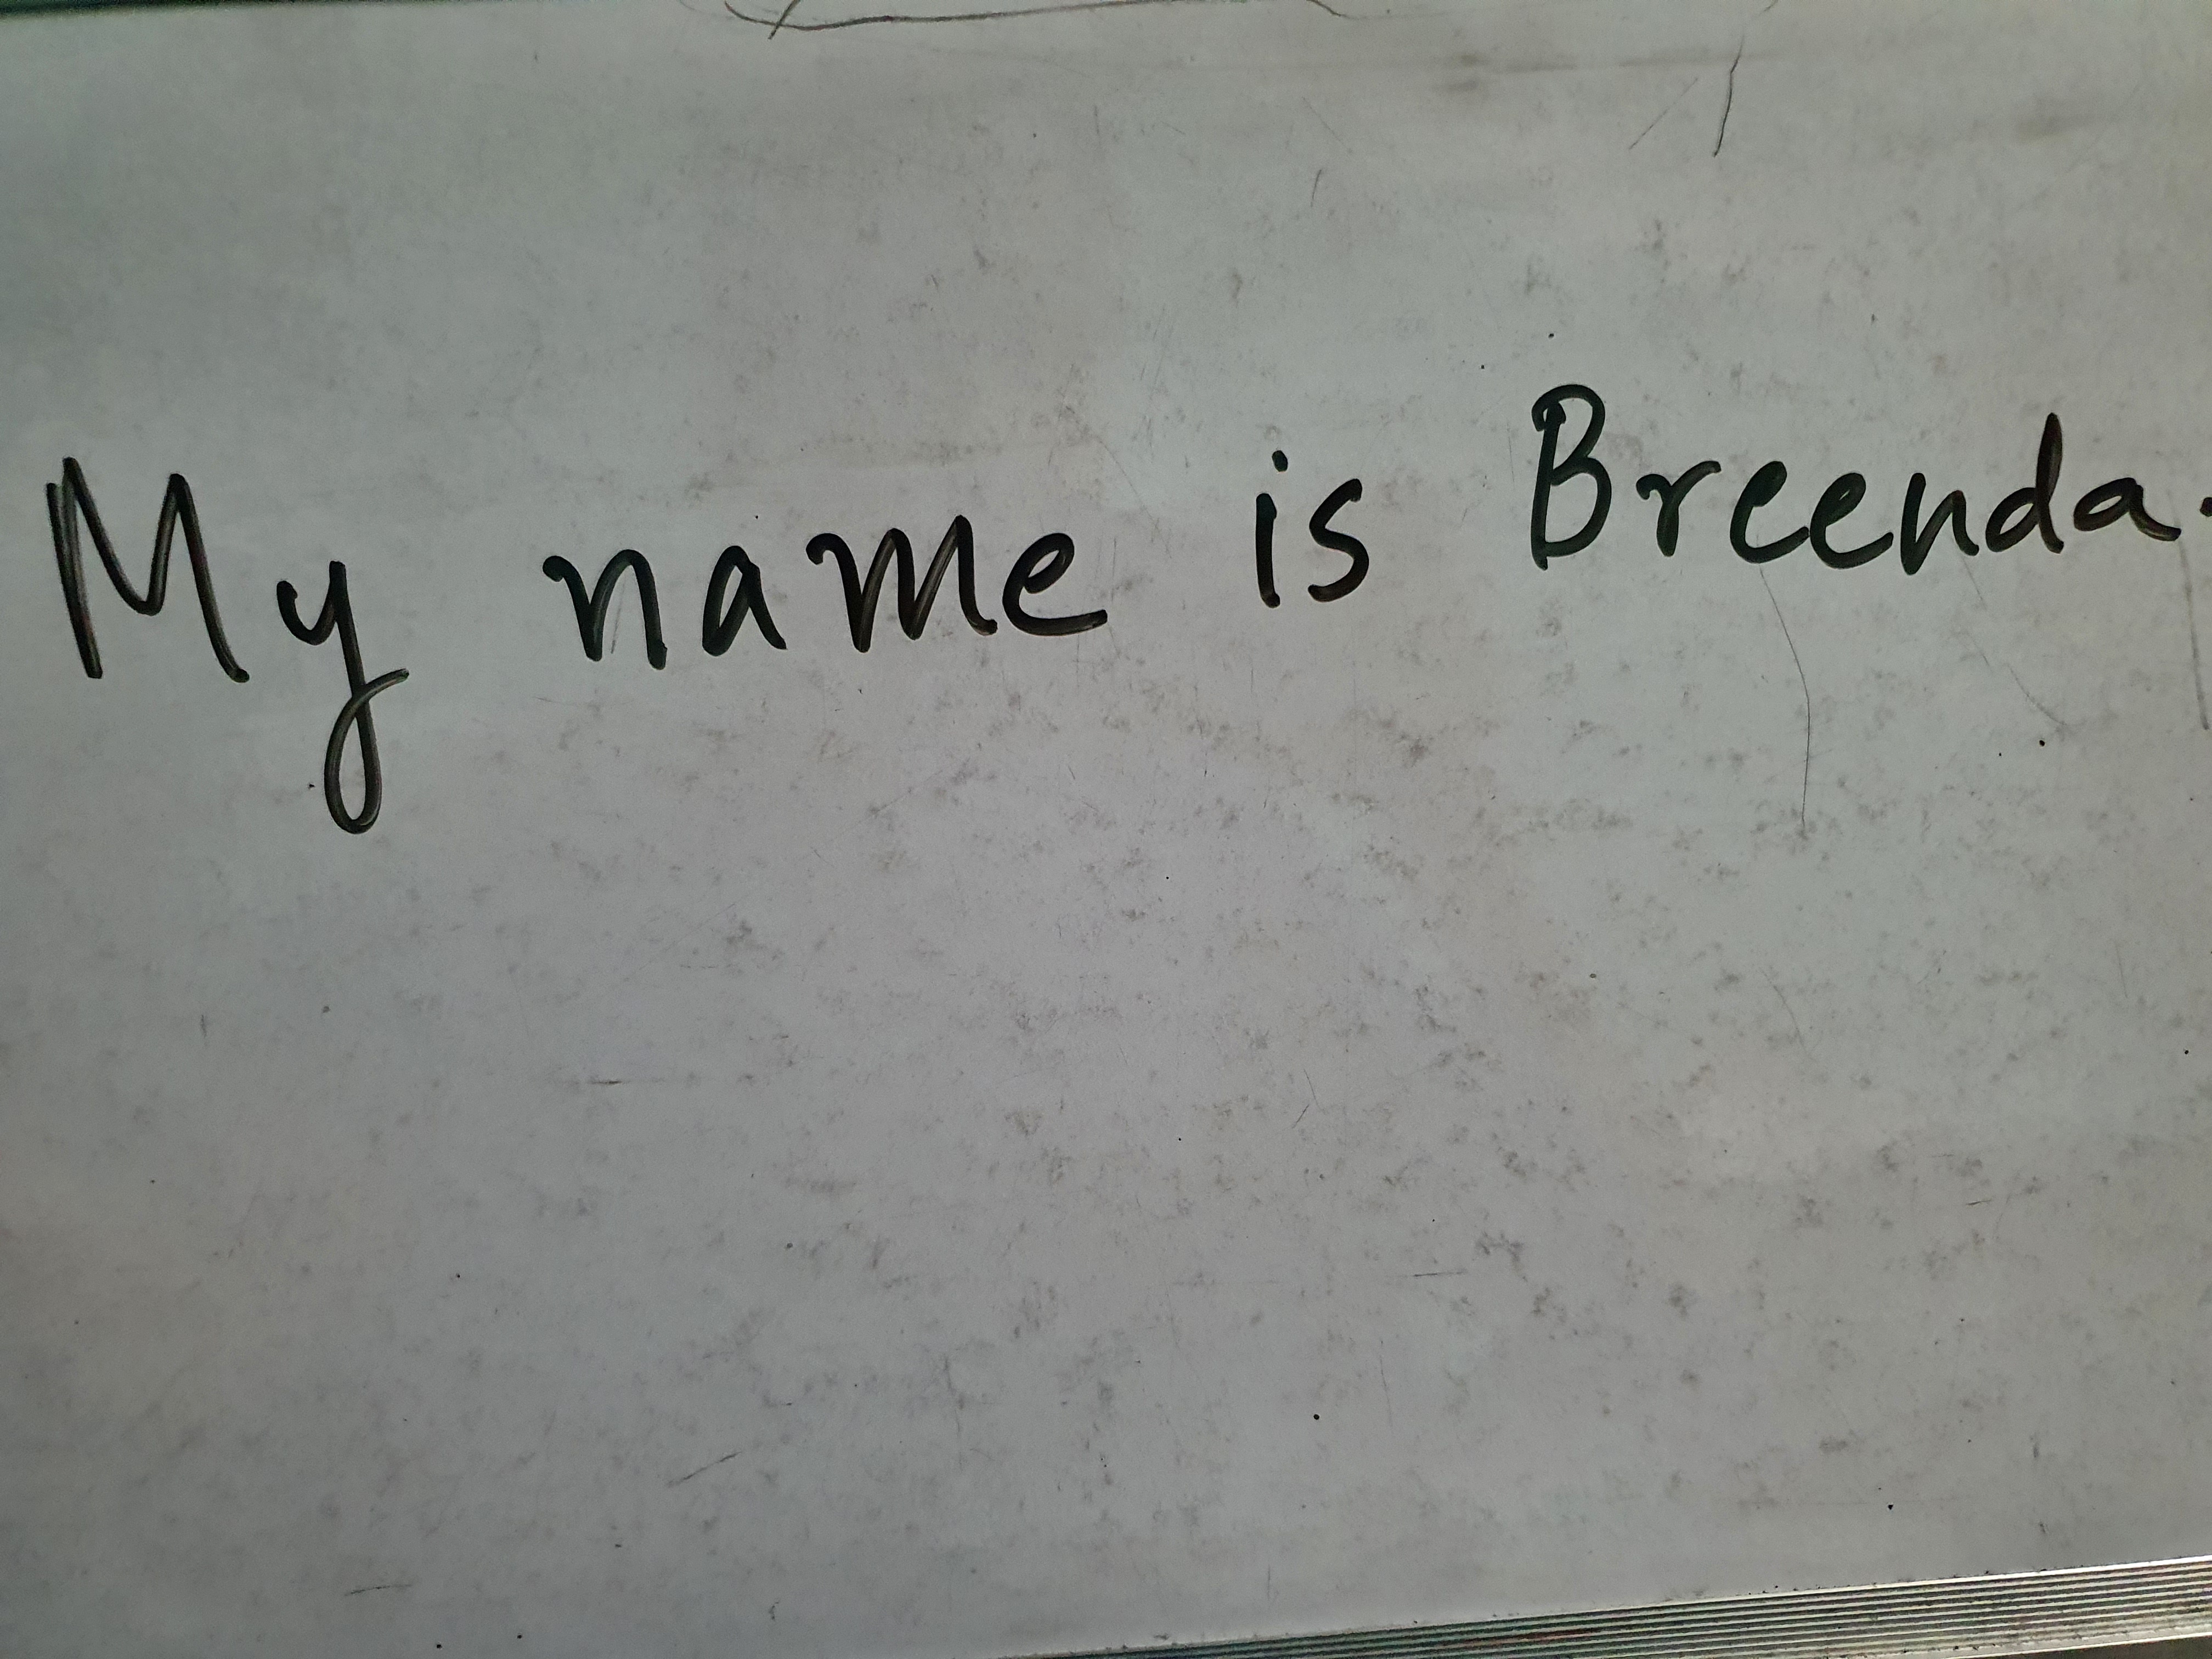 My name is Breenda.